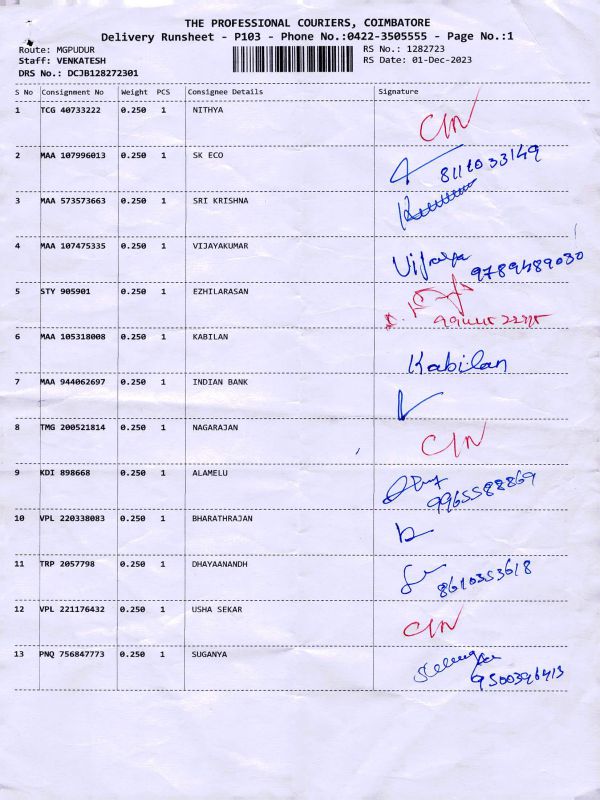 THE PROFESSIONAL COURIERS, COIMBATORE
Delivery Runsheet - P103 - Phone No.:0422-3505555 - Page No.:1
Route: MGPUDUR RS No.: 1282723
Staff: VENKATESH RS Date: 01-Dec-2023
DRS No.: DCJB128272301
S No Consignment No Weight PCS Consignee Details Signature
1 TCG 40733222 0.250 1 NITHYA
2 MAA 107996013 0.250 1 SK ECO
8111033149
3 MAA 573573663 0.250 1 SRI KRISHNA
4 MAA 107475335 0.250 1 VIJAYAKUMAR
Vijaya 9789489030
5 STY 905901 0.250 1 EZHILARASAN
6 MAA 105318008 0.250 1 KABILAN
Kabilan
7 MAA 944062697 0.250 1 INDIAN BANK
8 TMG 200521814 0.250 1 NAGARAJAN
9 KDI 898668 0.250 1 ALAMELU
9965588869
10 VPL 220338083 0.250 1 BHARATHRAJAN
11 TRP 2057798 0.250 1 DHAYAANANDH
8610353618
12 VPL 221176432 0.250 1 USHA SEKAR
13 PNQ 756847773 0.250 1 SUGANYA
9500396413